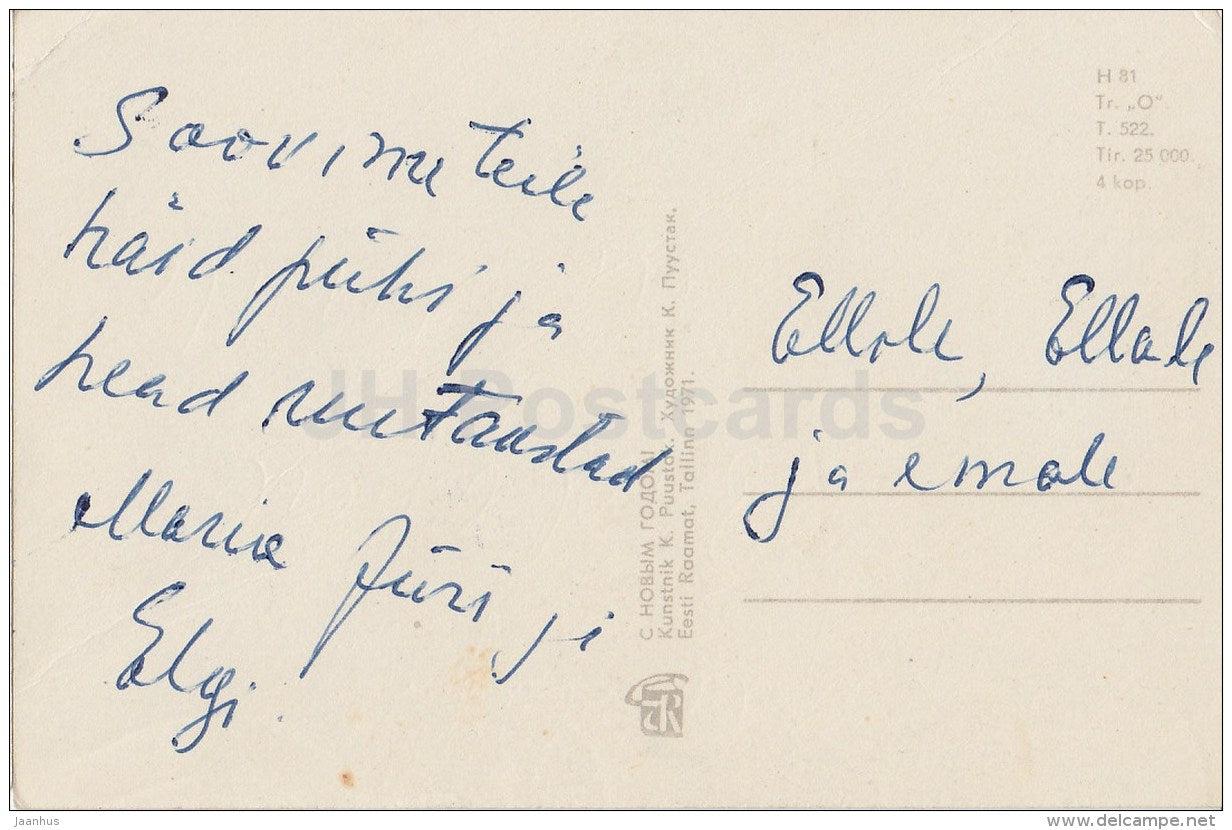 Soovime teile
häid pühi ja
head uut aastat
Maria Jüri ja
Elgi.
H 81
Tr. „O“.
T. 522.
Tir. 25 000.
4 kop.
С НОВЫМ ГОДОМ!
Kunstnik K. Puustak. Художник К. Пуустак.
Eesti Raamat, Tallinn 1971.
ER
Ellale
ja emale
JH Postcards
Jaanhus
delcampe.net